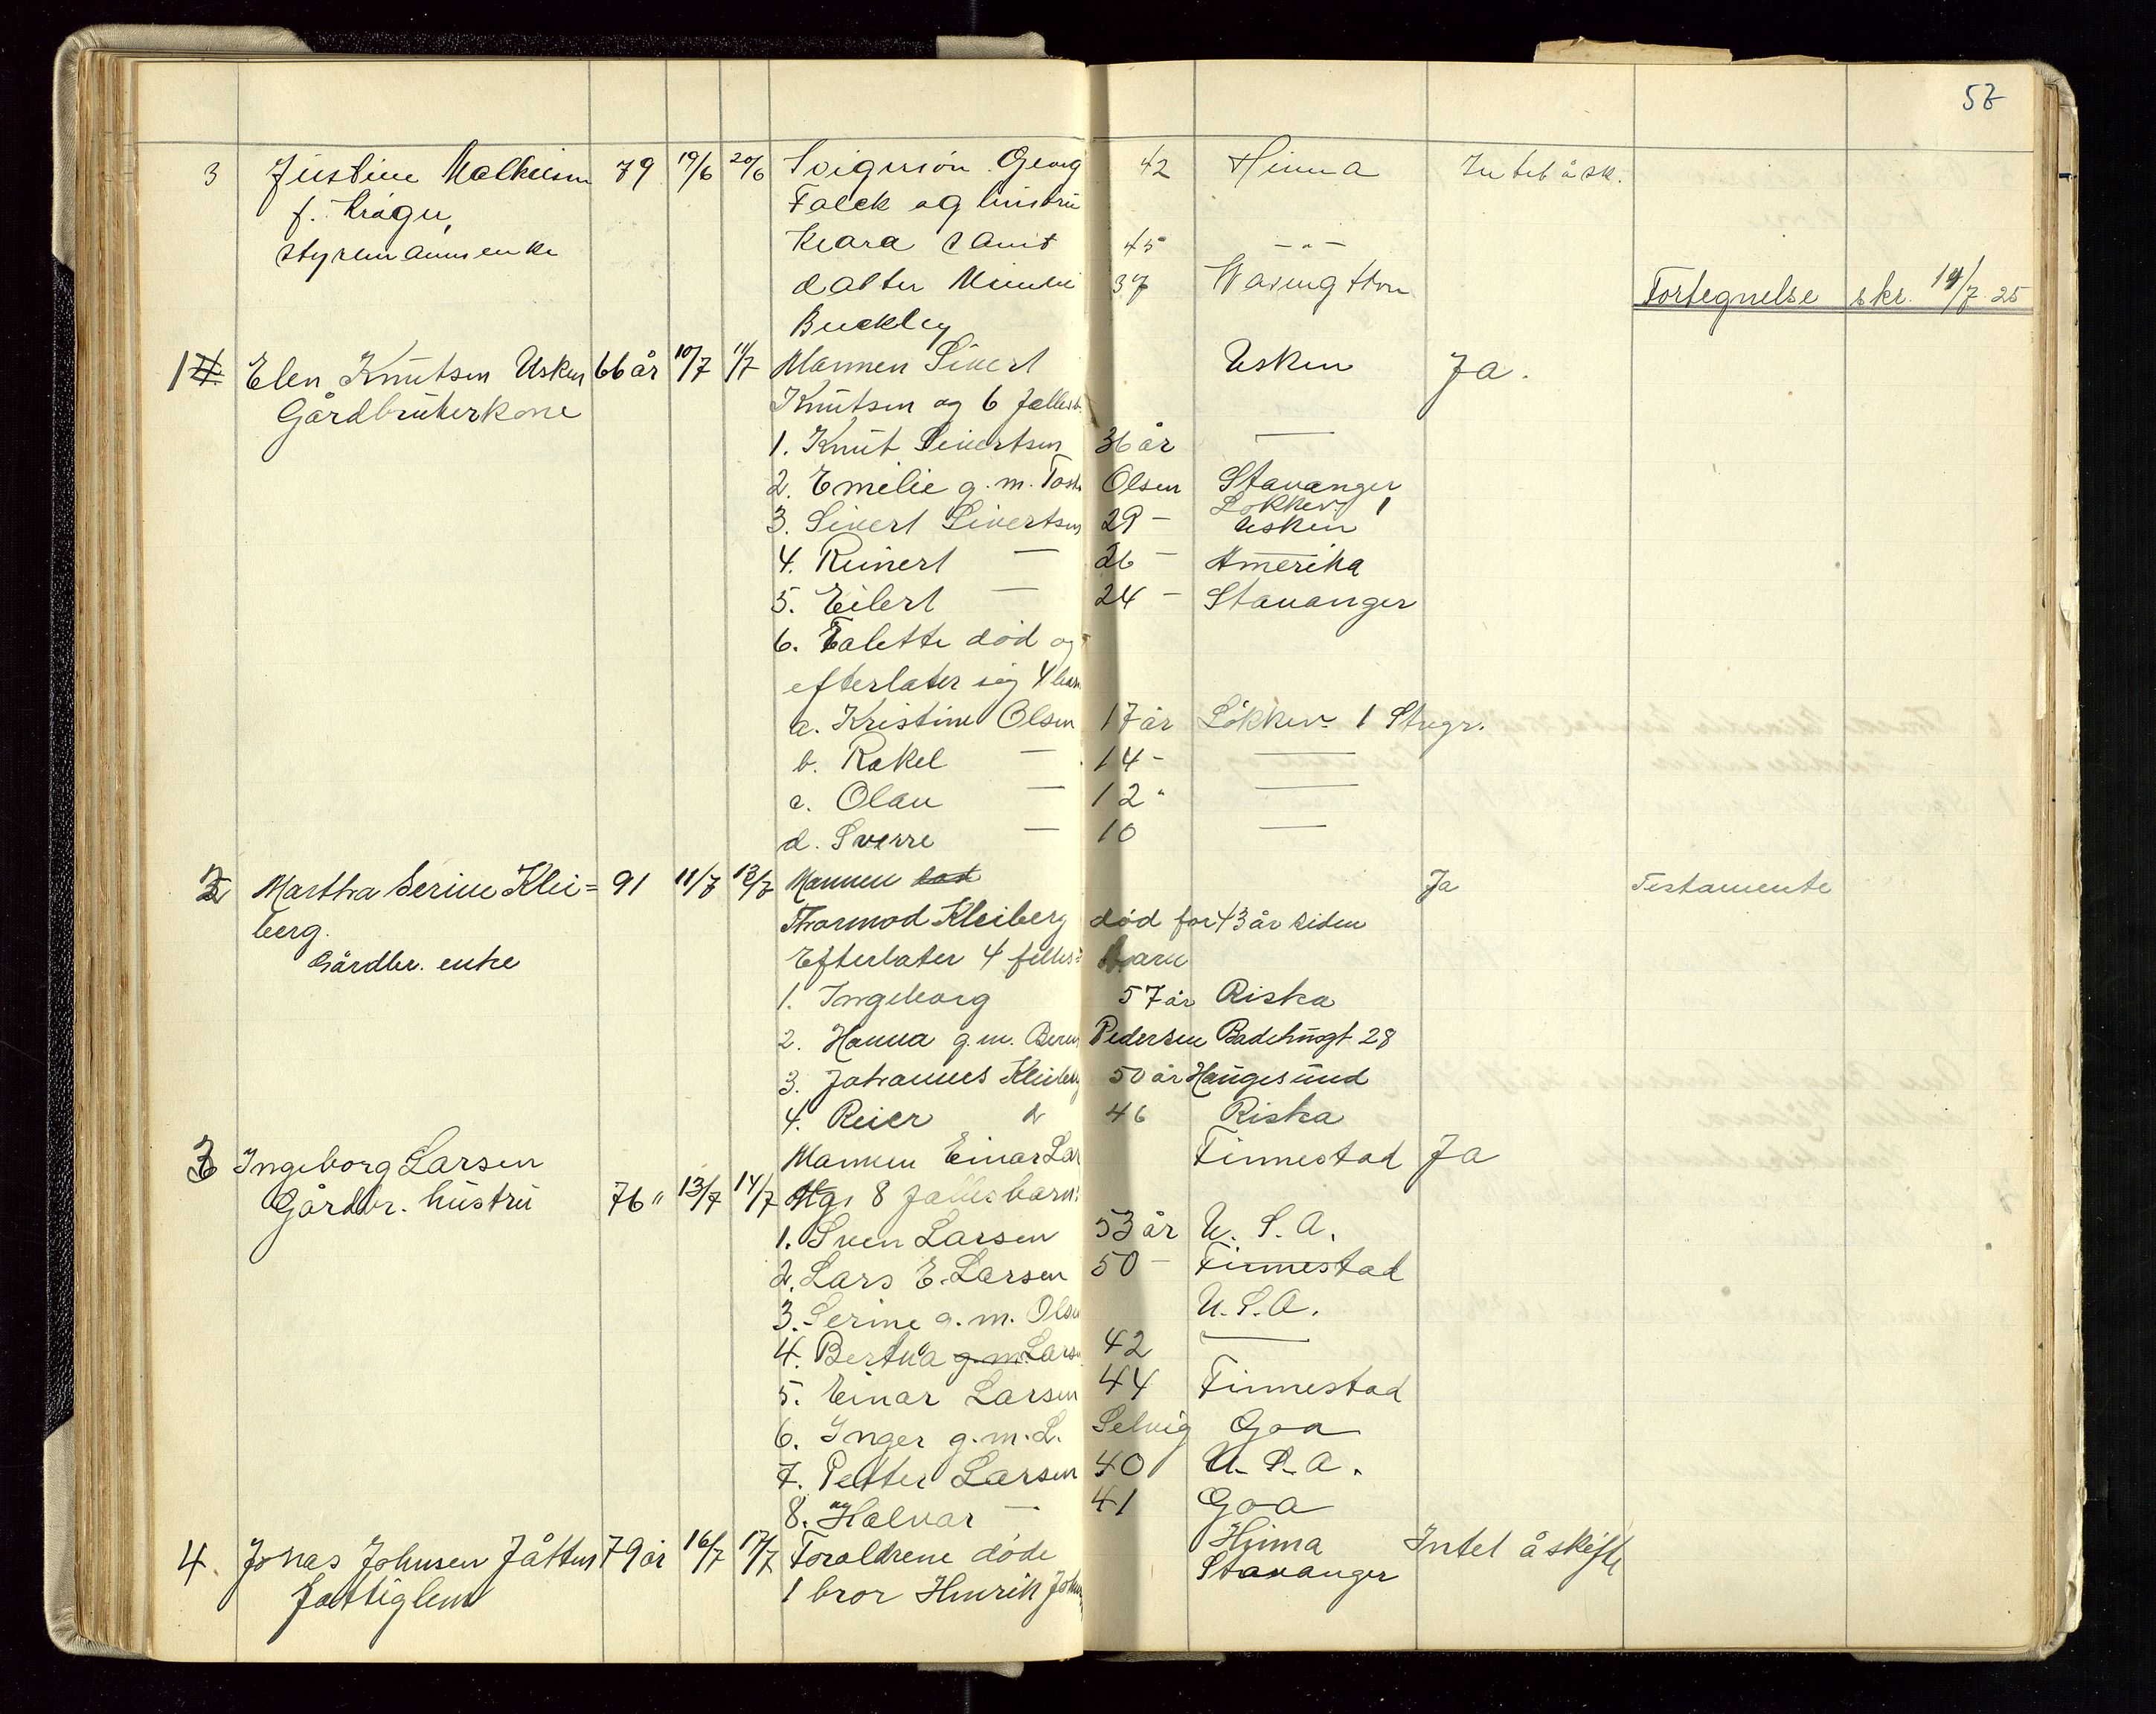 57
3 Justine Mathisen 79 19/6 20/6 Svigersön Georg 42 Hinna Intet å sk.
f. Kröger, Falck og hustru
styrmannsenke Klara samt 45 - " -
datter Minnie 37 Wasington
Fortegnelse skr. 14/7 25
Buckley
1 Elen Knutsen Usken 66 år 10/7 11/7 Mannen Sivert Usken Ja.
Gårdbrukerkone Knutsen og 6 fællesb.
1. Knut Sivertsen 36 år —
2. Emelie g. m. Tosten Olsen Stavanger
Løkkev 1
3. Sivert Sivertsen 29 - Usken
4. Reinert — 26 - Amerika
5. Eilert — 24 - Stavanger
6. Talette død og
efterlater sig 4 barn
a. Kristine Olsen 17 år Løkkev. 1 Stvgr.
b. Rakel — 14 - —
c. Olav — 12 " —
d. Sverre — 10 —
2 Martha Serine Klei= 91 11/7 13/7 Mannen Ja Testamente
berg. Thormod Kleiberg død for 43 år siden
Gårdbr. enke Efterlater 4 felles= barn
1. Ingeborg 57 år Riska
2. Hanna g. m. Bernt Pedersen Badehusgt 28
3. Johannes Kleiberg 50 år Haugesund
4. Reier do 46 Riska
3 Ingeborg Larsen Mannen Einar Lar Finnestad Ja
Gårdbr. hustru 76 " 13/7 14/7 og 8 fællesbarn:
1. Sven Larsen 53 år U. S. A.
2. Lars E. Larsen 50 - Finnestad
3. Serine g. m. Olsen U. S. A.
4. Bertha g. m. Larsen 42 —
5. Einar Larsen 44 Finnestad
6. Inger g. m. L. Selvig Goa
7. Petter Larsen 40 U. S. A.
8. og Halvar — 41 Goa
4. Jonas Johnsen Jåttun 79 år 16/7 17/7 Foraldrene døde Hinna Intet å skifte
fattiglem 1 bror Henrik Johnsen Stavanger